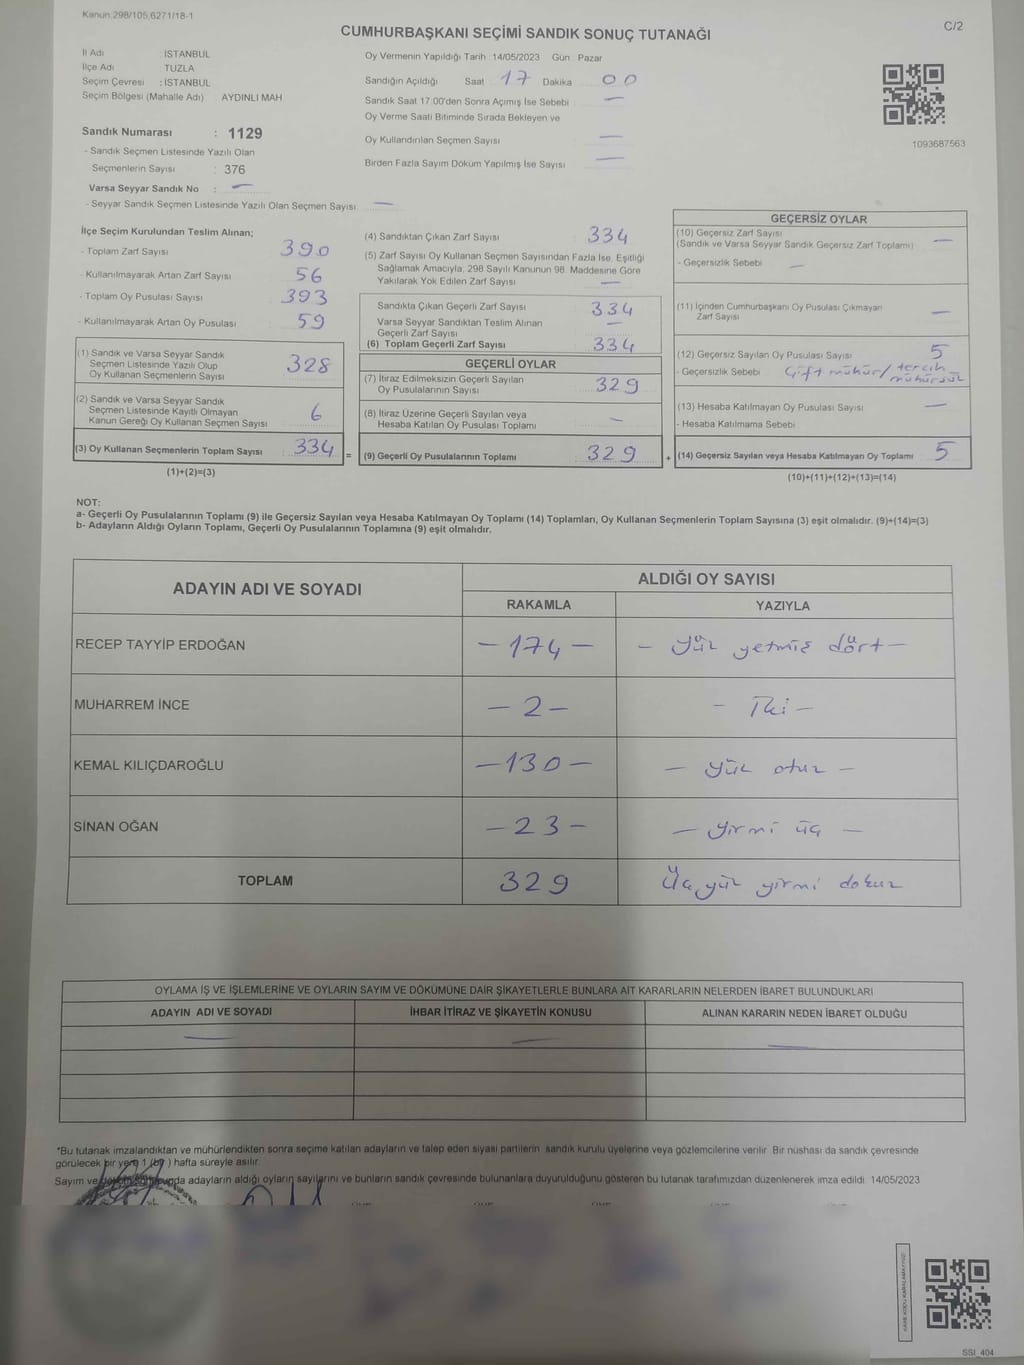 Kanun:298/105,6271/18-1
C/2
CUMHURBAŞKANI SEÇİMİ SANDIK SONUÇ TUTANAĞI
İl Adı : İSTANBUL
İlçe Adı : TUZLA
Seçim Çevresi : İSTANBUL
Seçim Bölgesi (Mahalle Adı) : AYDINLI MAH
Sandık Numarası : 1129
- Sandık Seçmen Listesinde Yazılı Olan
Seçmenlerin Sayısı : 376
Varsa Seyyar Sandık No : —
- Seyyar Sandık Seçmen Listesinde Yazılı Olan Seçmen Sayısı : —
Oy Vermenin Yapıldığı Tarih : 14/05/2023 Gün : Pazar
Sandığın Açıldığı Saat 17 Dakika 00
Sandık Saat 17:00'den Sonra Açımış İse Sebebi —
Oy Verme Saati Bitiminde Sırada Bekleyen ve
Oy Kullandırılan Seçmen Sayısı —
Birden Fazla Sayım Döküm Yapılmış İse Sayısı —
1093687563
İlçe Seçim Kurulundan Teslim Alınan;
- Toplam Zarf Sayısı 390
- Kullanılmayarak Artan Zarf Sayısı 56
- Toplam Oy Pusulası Sayısı 393
- Kullanılmayarak Artan Oy Pusulası 59
(1) Sandık ve Varsa Seyyar Sandık
Seçmen Listesinde Yazılı Olup
Oy Kullanan Seçmenlerin Sayısı 328
(2) Sandık ve Varsa Seyyar Sandık
Seçmen Listesinde Kayıtlı Olmayan
Kanun Gereği Oy Kullanan Seçmen Sayısı 6
(3) Oy Kullanan Seçmenlerin Toplam Sayısı 334 =
(1)+(2)=(3)
(4) Sandıktan Çıkan Zarf Sayısı 334
(5) Zarf Sayısı Oy Kullanan Seçmen Sayısından Fazla İse, Eşitliği
Sağlamak Amacıyla, 298 Sayılı Kanunun 98. Maddesine Göre
Yakılarak Yok Edilen Zarf Sayısı —
Sandıkta Çıkan Geçerli Zarf Sayısı 334
Varsa Seyyar Sandıktan Teslim Alınan —
Geçerli Zarf Sayısı
(6) Toplam Geçerli Zarf Sayısı 334
GEÇERLİ OYLAR
(7) İtiraz Edilmeksizin Geçerli Sayılan
Oy Pusulalarının Sayısı 329
(8) İtiraz Üzerine Geçerli Sayılan veya
Hesaba Katılan Oy Pusulası Toplamı —
(9) Geçerli Oy Pusulalarının Toplamı 329 +
GEÇERSİZ OYLAR
(10) Geçersiz Zarf Sayısı
(Sandık ve Varsa Seyyar Sandık Geçersiz Zarf Toplamı) —
- Geçersizlik Sebebi —
(11) İçinden Cumhurbaşkanı Oy Pusulası Çıkmayan
Zarf Sayısı —
(12) Geçersiz Sayılan Oy Pusulası Sayısı 5
- Geçersizlik Sebebi Çift mühür / tercih mühürsüz
(13) Hesaba Katılmayan Oy Pusulası Sayısı —
- Hesaba Katılmama Sebebi
(14) Geçersiz Sayılan veya Hesaba Katılmayan Oy Toplamı 5
(10)+(11)+(12)+(13)=(14)
NOT:
a- Geçerli Oy Pusulalarının Toplamı (9) ile Geçersiz Sayılan veya Hesaba Katılmayan Oy Toplamı (14) Toplamları, Oy Kullanan Seçmenlerin Toplam Sayısına (3) eşit olmalıdır. (9)+(14)=(3)
b- Adayların Aldığı Oyların Toplamı, Geçerli Oy Pusulalarının Toplamına (9) eşit olmalıdır.
ADAYIN ADI VE SOYADI ALDIĞI OY SAYISI
RAKAMLA YAZIYLA
RECEP TAYYİP ERDOĞAN - 174 - - Yüz yetmiş dört -
MUHARREM İNCE - 2 - - İki -
KEMAL KILIÇDAROĞLU - 130 - - yüz otuz -
SİNAN OĞAN - 23 - - yirmi üç -
TOPLAM 329 Üç yüz yirmi dokuz
OYLAMA İŞ VE İŞLEMLERİNE VE OYLARIN SAYIM VE DÖKÜMÜNE DAİR ŞİKAYETLERLE BUNLARA AİT KARARLARIN NELERDEN İBARET BULUNDUKLARI
ADAYIN ADI VE SOYADI İHBAR İTİRAZ VE ŞİKAYETİN KONUSU ALINAN KARARIN NEDEN İBARET OLDUĞU
— — —
*Bu tutanak imzalandıktan ve mühürlendikten sonra seçime katılan adayların ve talep eden siyasi partilerin sandık kurulu üyelerine veya gözlemcilerine verilir. Bir nüshası da sandık çevresinde
görülecek bir yere 1 (bir) hafta süreyle asılır.
Sayım ve döküm sonucunda adayların aldığı oyların sayılarını ve bunların sandık çevresinde bulunanlara duyurulduğunu gösteren bu tutanak tarafımızdan düzenlenerek imza edildi. 14/05/2023
SSI_404